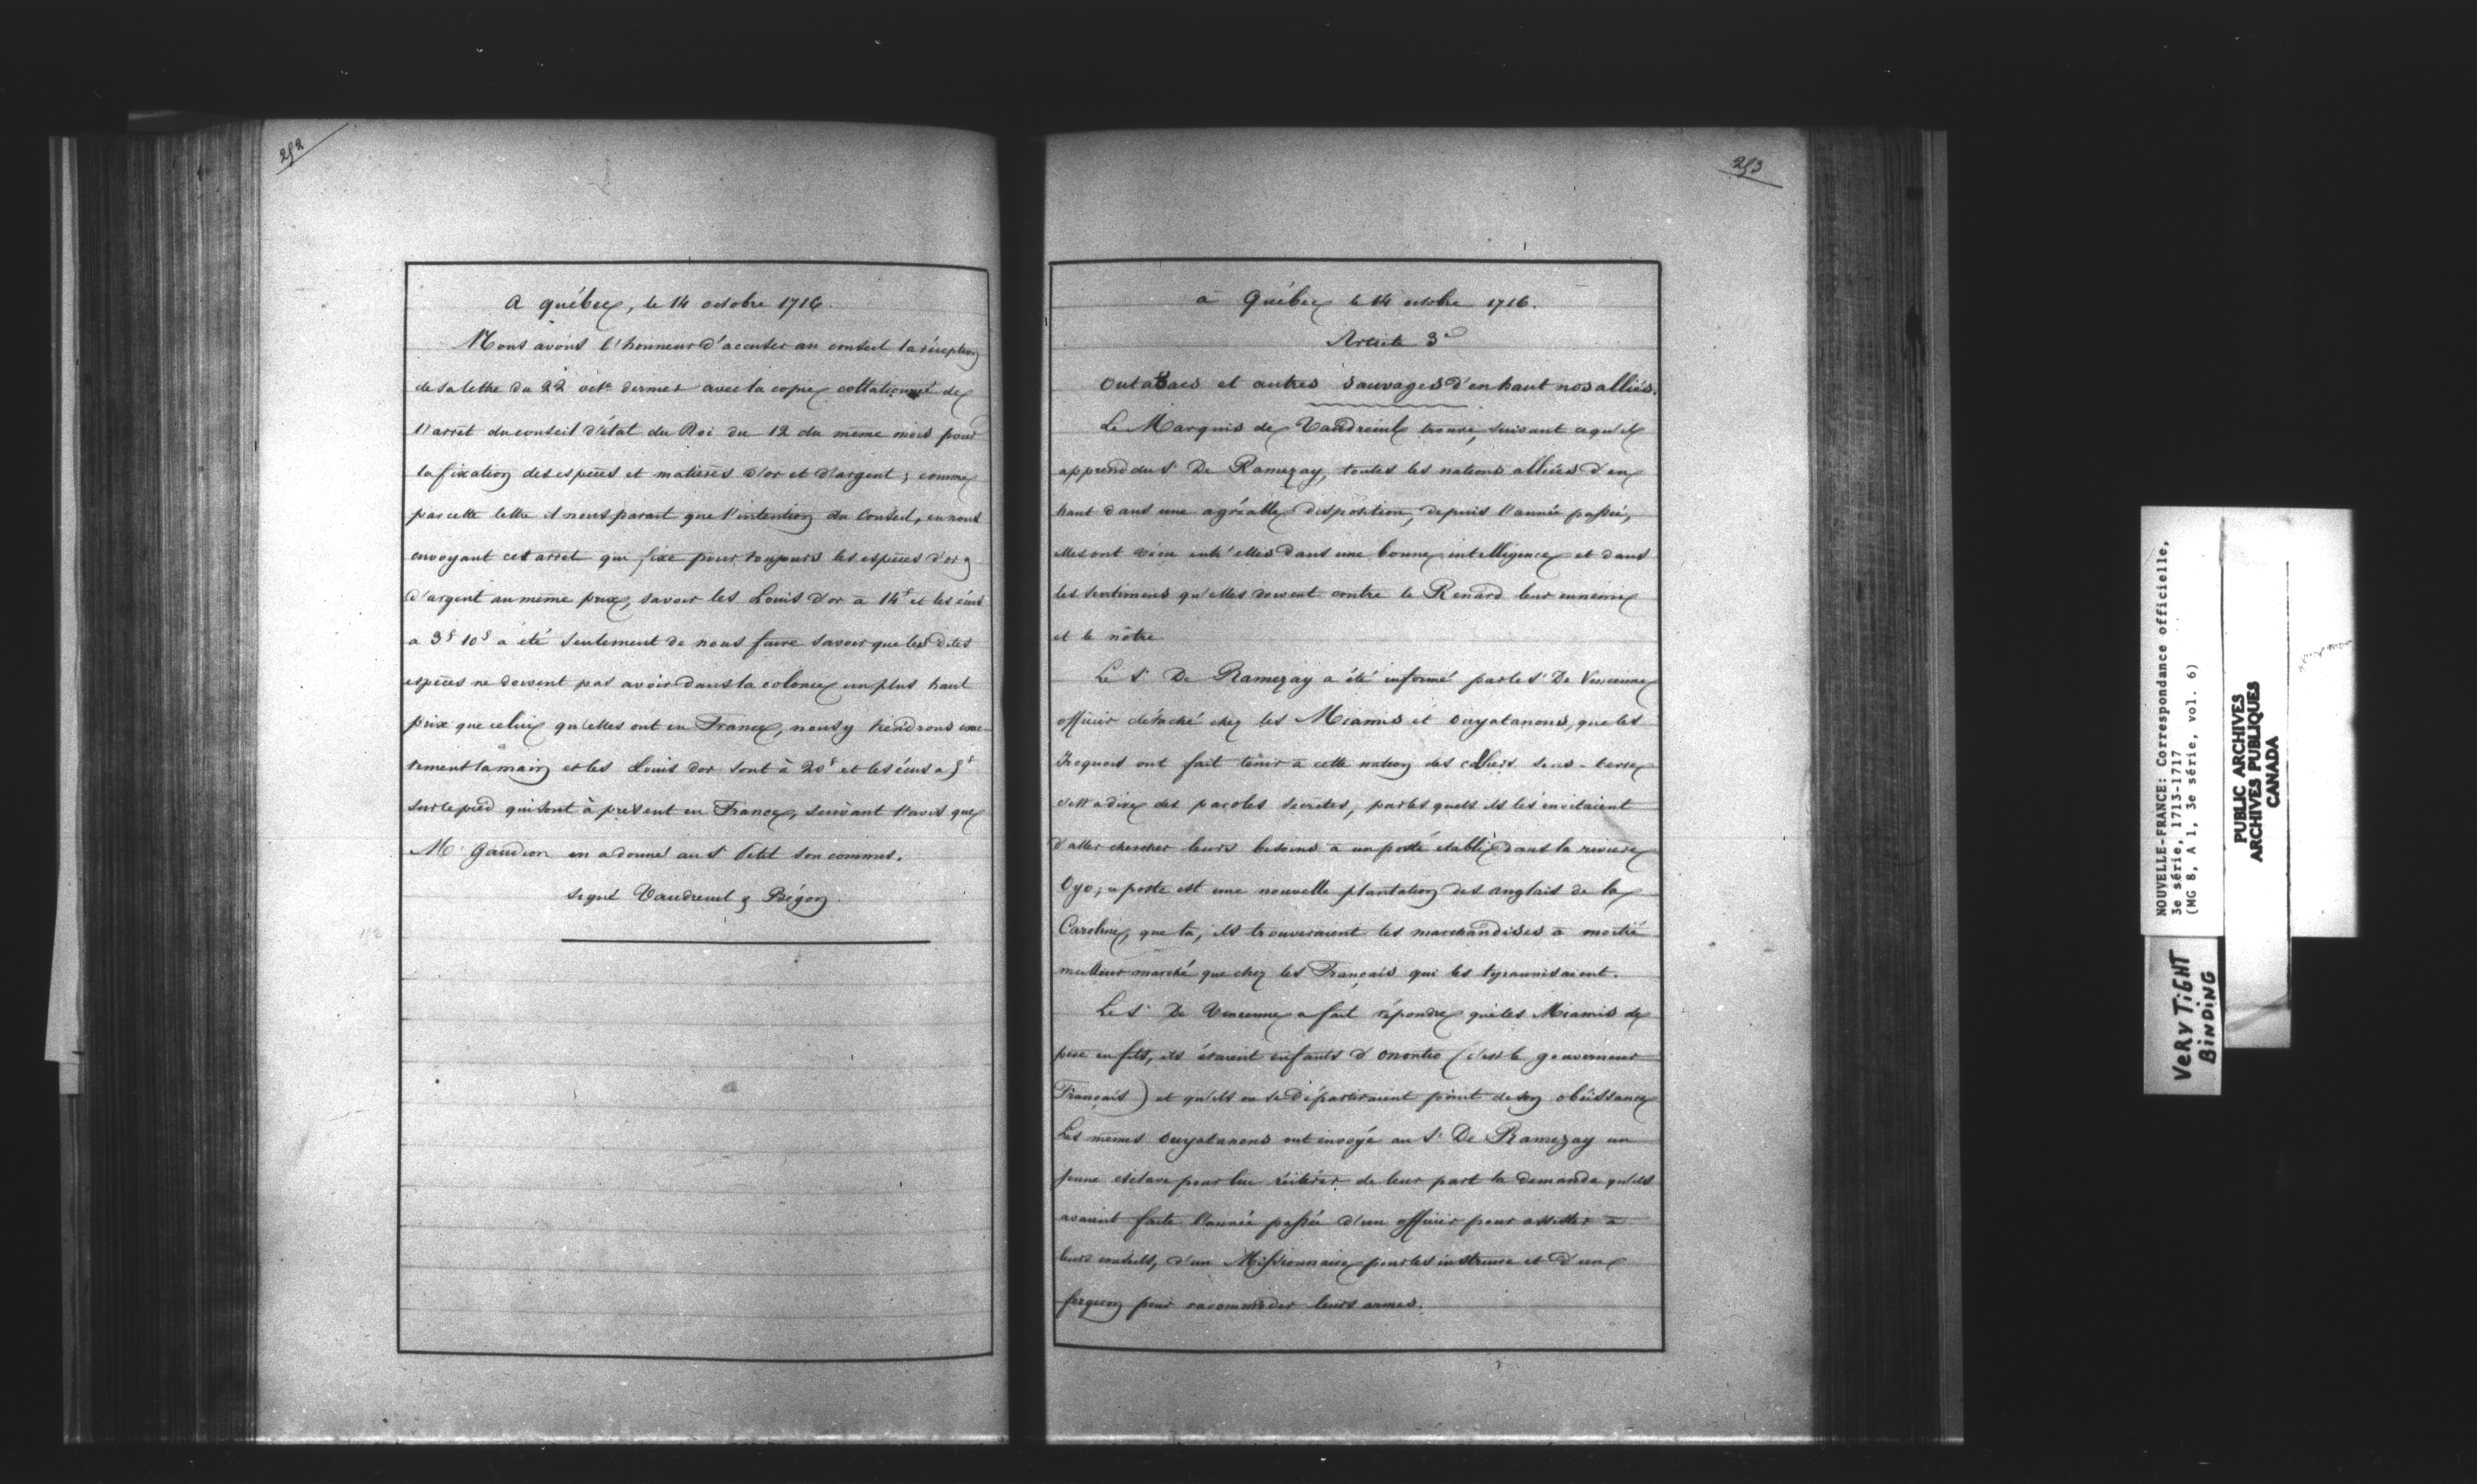 252
A québec, le 14 octobre 1716.
Nous avons l'honneur d'accuser au conseil la réception
de sa lettre du 22 oct.e dernier avec la copie collationnée de
l'arrêt du conseil d'état du Roi du 12 du même mois pour
la fixation des espèces et matières d'or et d'argent ; comme
par cette lettre il nous parait que l'intention du Conseil, en nous
envoyant cet arrêt qui fixe pour toujours les espèces d'or &
d'argent au même prix, savoir les Louis d'or à 14# et les écus
a 3# 10s a été seulement de nous faire savoir que les dites
espèces ne doivent pas avoir dans la colonie un plus haut
prix que celui qu'elles ont en France, nous y tiendrons exac-
tement la main et les Louis d'or sont à 20# et les écus a 5#
sur le pied qui sont à présent en France, suivant l'avis que
Mr Gaudion en a donné au Sr Petit son commis.
signé Vaudreuil & Bégon.
253
à Québec le 14 octobre 1716.
Article 3e
Outa8acs et autres sauvages d'en haut nos alliés.
Le Marquis de Vaudreuil trouve, suivant ce qu'il
apprend du Sr De Ramezay, toutes les nations alliées d'en
haut dans une agréable disposition, depuis l'année passée,
elles ont vécu entr'elles dans une bonne intelligence et dans
les sentimens qu'elles doivent contre le Renard leur ennemi
et le nôtre
Le Sr De Ramezay a été informé par le Sr De Vincenne
officier détaché chez les Miamis et Ouyatanons, que les
Iroquois ont fait tenir à cette nation des colliers sous-terre
c'est a dire des paroles secrètes, par les quels ils les invitaient
d'aller chercher leurs besoins à un poste établi dans la rivière
Oyo ; ce poste est une nouvelle plantation des anglais de la
Caroline, que là, ils trouveraient les marchandises à moitié
meilleur marché que chez les Français qui les tyrannisaient.
Le Sr De Vincenne a fait répondre que les Miamis de
père en fils, ils étaient enfants d'Onontio (c'est le gouverneur
Français) et qu'ils ne se départiraient point de son obéissance
Les mêmes Ouyatanons ont envoyé au Sr De Ramezay un
jeune esclave pour lui réitérer de leur part la demande qu'ils
avaient faite l'année passée d'un officier pour assister à
leurs conseils, d'un Missionnaire pour les instruire et d'un
forgeron pour racommoder leurs armes.
NOUVELLE-FRANCE: Correspondance officielle,
3e série, 1713-1717
(MG 8, A 1, 3e série, vol. 6)
PUBLIC ARCHIVES
ARCHIVES PUBLIQUES
CANADA
VERY TIGHT
BINDING